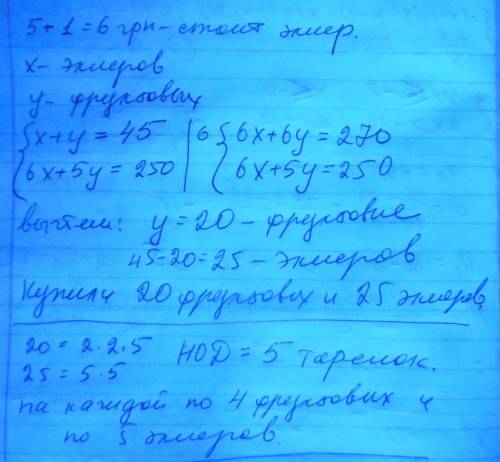 5+1=6 грн - стоит эклер.
x - эклеров
y - фруктовых
{x+y = 45 | 6 {6x+6y = 270
{6x+5y = 250 | {6x+5y = 250
вычтем: y = 20 - фруктовые
45-20=25 - эклеров
Купили 20 фруктовых и 25 эклеров
20 = 2·2·5 НОД = 5 тарелок.
25 = 5·5
на каждой по 4 фруктовых и
по 5 эклеров.